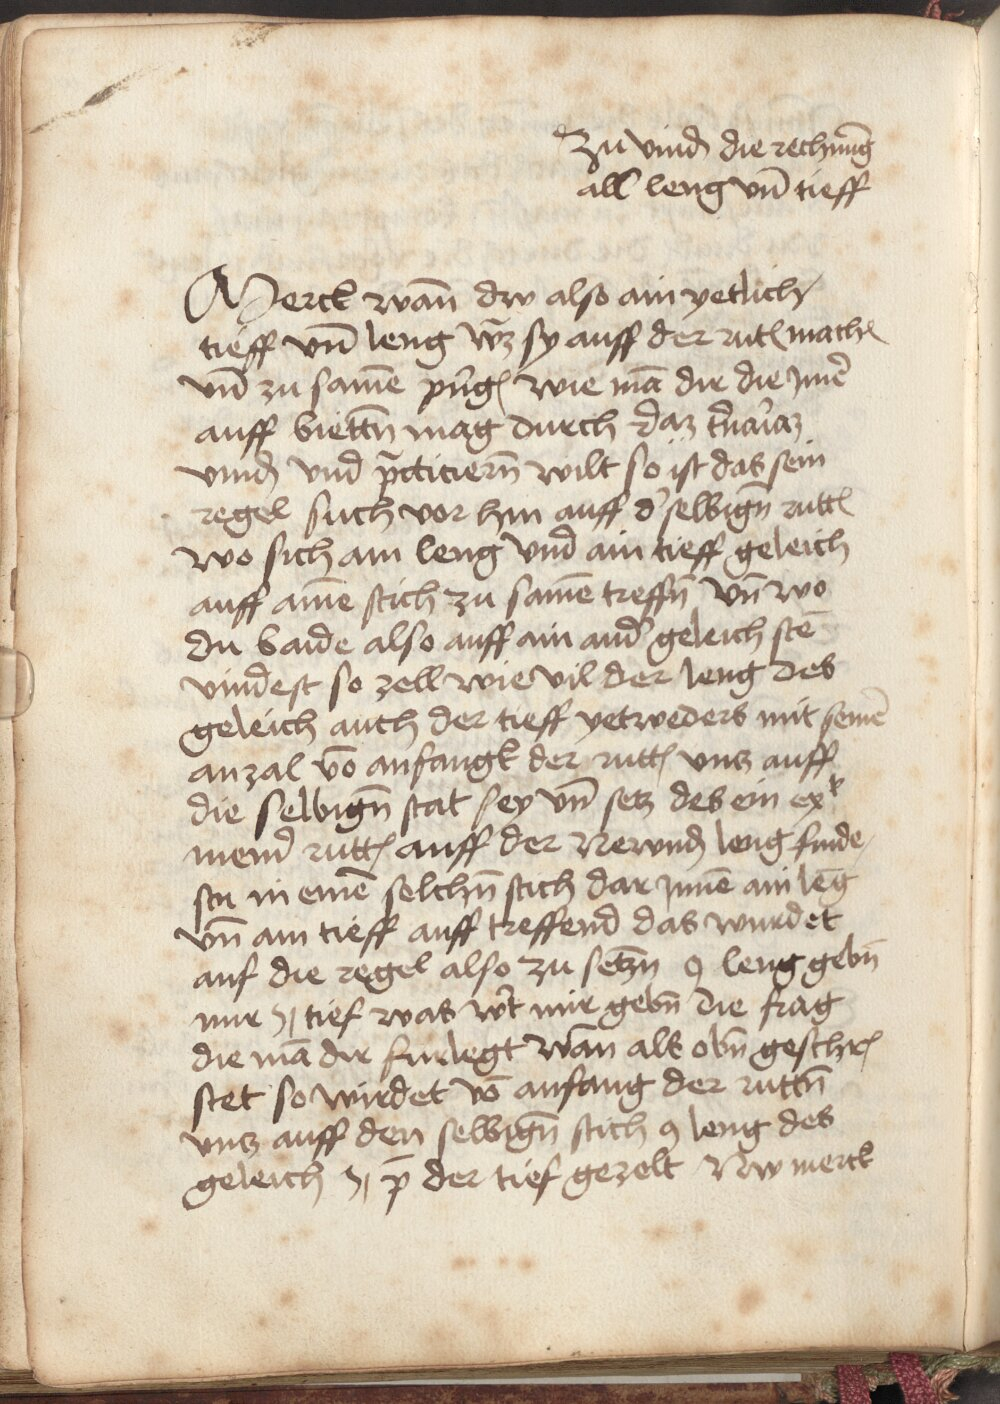 Zu vind die rechnūg
all leng vn̄ tieff
Merck wan̄ dw also ain yetlich
tieff vn̄ leng wz sy auff der rut mach
vn̄ zu samē wie mā dir die
auff biettn̄ mag durch daz
vind vnd practiciern̄ wilt so ist das sein
regel such vor hin auff d' selbign̄ rutt
wo sich ain leng vnd ain tieff geleich
auff ainē stich zu samē treffn̄ vn̄ wo
du baide also auff ain and' geleich stē
vindest so zell wie vil der leng des
geleich auch der tieff yetweders mit seinē
anzal vō anfangk der rutt vntz auff
die selbign̄ stat sey vn̄ setz des ein ex̄l
nem̄ rutt auff der Newnd leng finde
stu in einē solchn̄ stich dar ynnē ain lēg
vn̄ ain tieff auff treffend das wurdet
auf die regel also zu setzn̄ 9 leng gebn̄
mir tief was w't mir gebn̄ die frag
die mā dir furlegt wan̄ als obn̄ geschr
stet so wirdet vō anfang der ruttn̄
vntz auff den selbign̄ stich 9 leng des
geleich der tief gezelt Nw merck